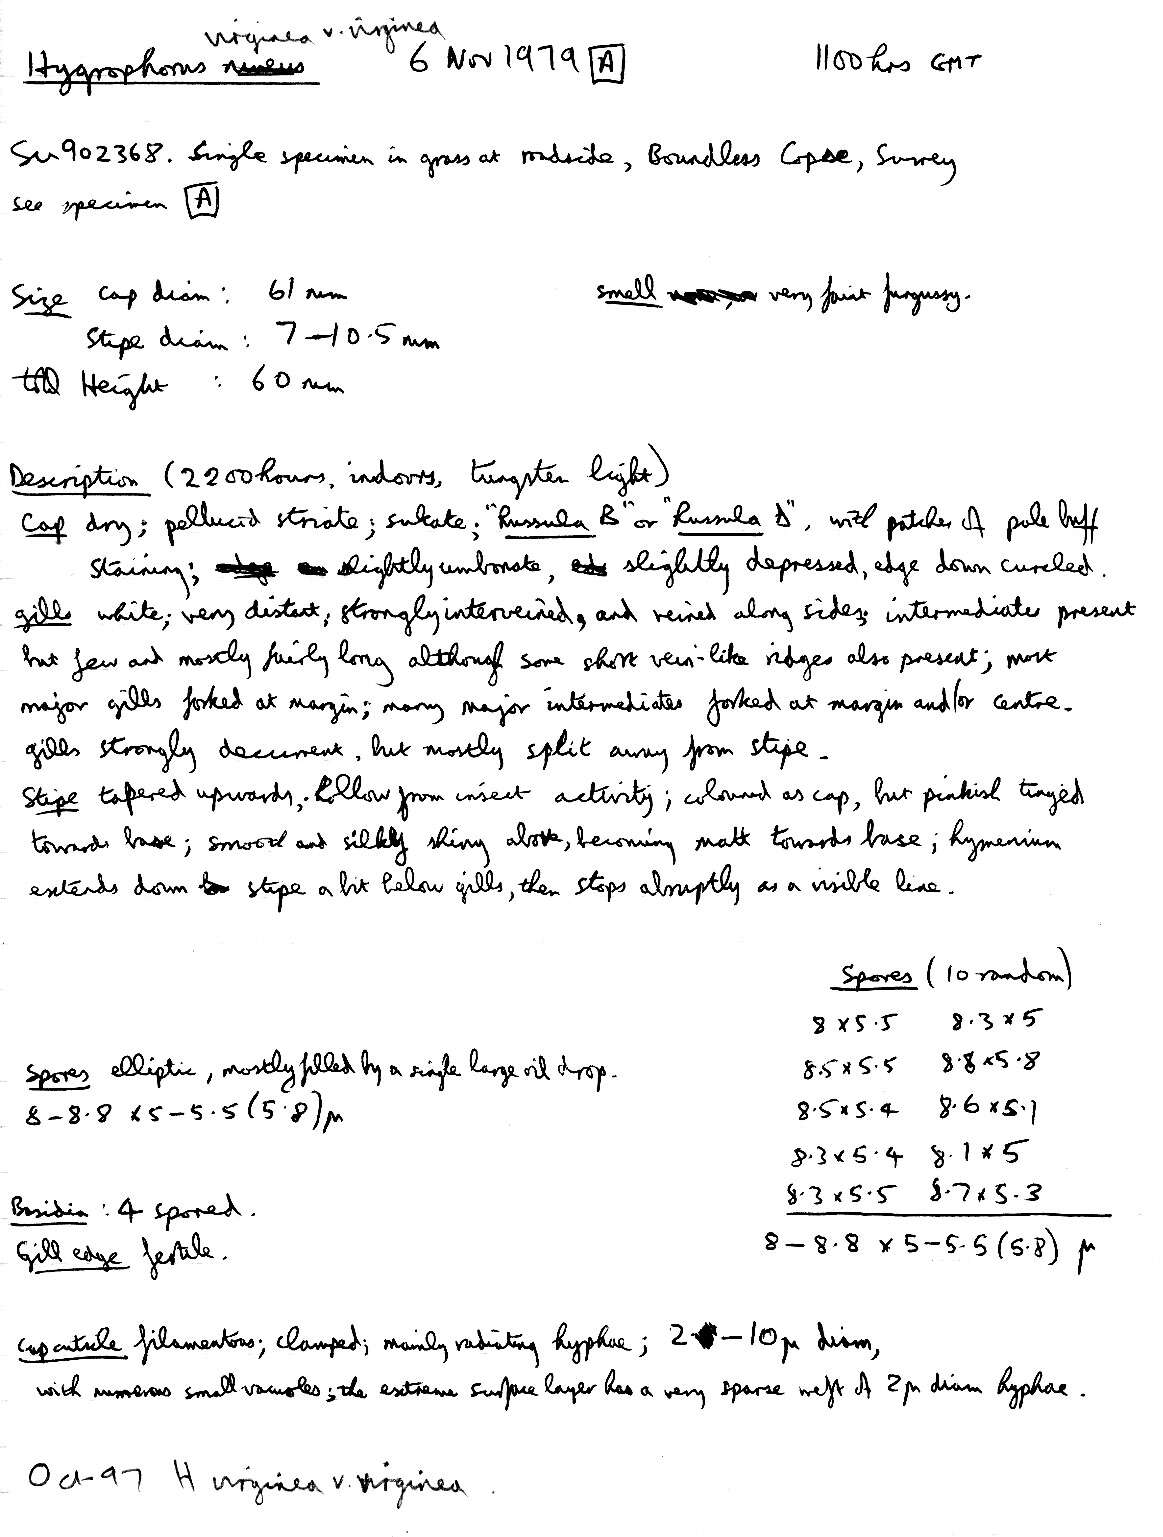 virginea v. virginea
Hygrophorus niveus 6 Nov 1979 A 1100 hrs GMT
SU 902368. Single specimen in grass at roadside, Boundless Copse, Surrey
see specimen A
Size Cap diam: 61 mm smell very faint fungussy.
Stipe diam: 7–10.5 mm
Height : 60 mm
Description (2200 hours, indoors, tungsten light)
Cap dry; pellucid striate; sulcate; "Russula B" or "Russula D", with patches of pale buff
staining; slightly umbonate, slightly depressed, edge down curled.
gills white; very distant; strongly interveined, and veined along sides; intermediates present
but few and mostly fairly long although some short vein-like ridges also present; most
major gills forked at margin; many major intermediates forked at margin and/or centre.
gills strongly decurrent, but mostly split away from stipe.
Stipe tapered upwards; hollow from insect activity; coloured as cap, but pinkish tinged
towards base; smooth and silkily shiny above, becoming matt towards base; hymenium
extends down stipe a bit below gills, then stops abruptly as a visible line.
Spores (10 random)
8 x 5.5 8.3 x 5
8.5 x 5.5 8.8 x 5.8
8.5 x 5.4 8.6 x 5.1
8.3 x 5.4 8.1 x 5
8.3 x 5.5 8.7 x 5.3
8–8.8 x 5–5.5 (5.8) µ
Spores elliptic, mostly filled by a single large oil drop.
8–8.8 x 5–5.5 (5.8) µ
Basidia: 4 spored.
Gill edge fertile.
Cap cuticle filamentous; clamped; mainly radiating hyphae; 2–10µ diam,
with numerous small vacuoles; the extreme surface layer has a very sparse weft of 2µ diam hyphae.
Oct-97 H virginea v. virginea.